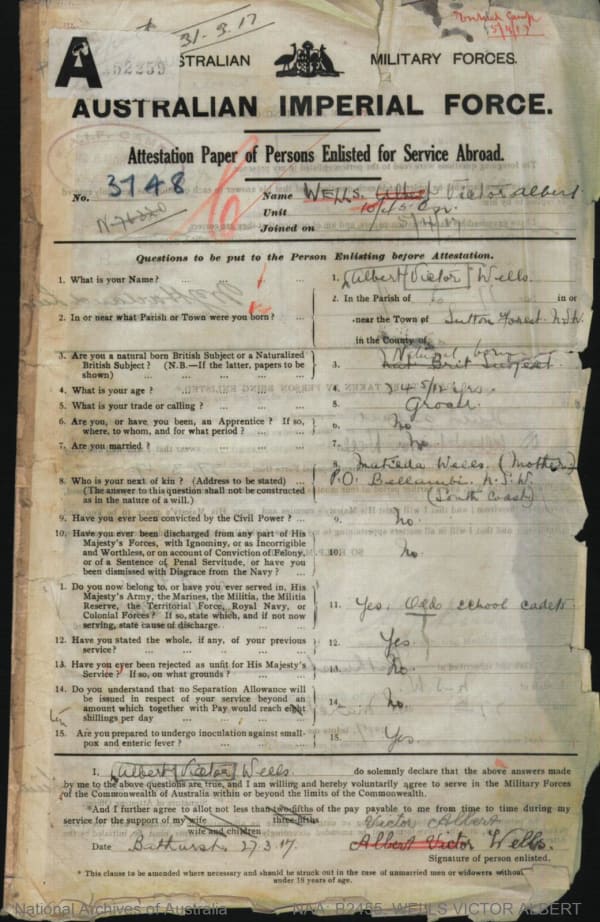 31-3-17
5/4/17
A
52359
AUSTRALIAN MILITARY FORCES.
AUSTRALIAN IMPERIAL FORCE.
Attestation Paper of Persons Enlisted for Service Abroad.
No. 3748
Name WELLS. Albert Victor Albert
Unit
Joined on 5/4/17
Questions to be put to the Person Enlisting before Attestation.
1. What is your Name? ... ... 1. Albert Victor Wells.
2. In or near what Parish or Town were you born? ... 2. In the Parish of in or
near the Town of Sutton Forest N.S.W.
in the County of
3. Are you a natural born British Subject or a Naturalized
British Subject? (N.B.—If the latter, papers to be
shown) ... ... ... 3. Natural born
Nat Brit Subject
4. What is your age? ... ... ... 4. 24 5/12 yrs.
5. What is your trade or calling? ... ... ... 5. Groom.
6. Are you, or have you been, an Apprentice? If so,
where, to whom, and for what period? ... ... 6. No
7. Are you married? ... ... ... 7. No
8. Who is your next of kin? (Address to be stated) ...
(The answer to this question shall not be constructed
as in the nature of a will.) 8. Matilda Wells. (Mother)
P.O. Bellambi. N.S.W.
(South Coast)
9. Have you ever been convicted by the Civil Power? ... 9. No.
10. Have you ever been discharged from any part of His
Majesty's Forces, with Ignominy, or as Incorrigible
and Worthless, or on account of Conviction of Felony,
or of a Sentence of Penal Servitude, or have you
been dismissed with Disgrace from the Navy? ... 10. No.
1. Do you now belong to, or have you ever served in, His
Majesty's Army, the Marines, the Militia, the Militia
Reserve, the Territorial Force, Royal Navy, or
Colonial Forces? If so, state which, and if not now
serving, state cause of discharge 11. Yes. school cadets
12. Have you stated the whole, if any, of your previous
service? ... ... ... ... 12. Yes.
13. Have you ever been rejected as unfit for His Majesty's
Service? If so, on what grounds? ... ... 13. No.
14. Do you understand that no Separation Allowance will
be issued in respect of your service beyond an
amount which together with Pay would reach eight
shillings per day ... ... ... 14. No.
15. Are you prepared to undergo inoculation against small-
pox and enteric fever? ... ... ... 15. Yes.
I, Albert Victor Wells. do solemnly declare that the above answers made
by me to the above questions are true, and I am willing and hereby voluntarily agree to serve in the Military Forces
of the Commonwealth of Australia within or beyond the limits of the Commonwealth.
*And I further agree to allot not less than two-fifths of the pay payable to me from time to time during my
three-fifths
service for the support of my wife
wife and children
Victor Albert
Date Bathurst 27.3.17. Albert Victor Wells.
Signature of person enlisted.
* This clause to be amended where necessary and should be struck out in the case of unmarried men or widowers without
under 18 years of age.
National Archives of Australia NAA: B2455, WELLS VICTOR ALBERT